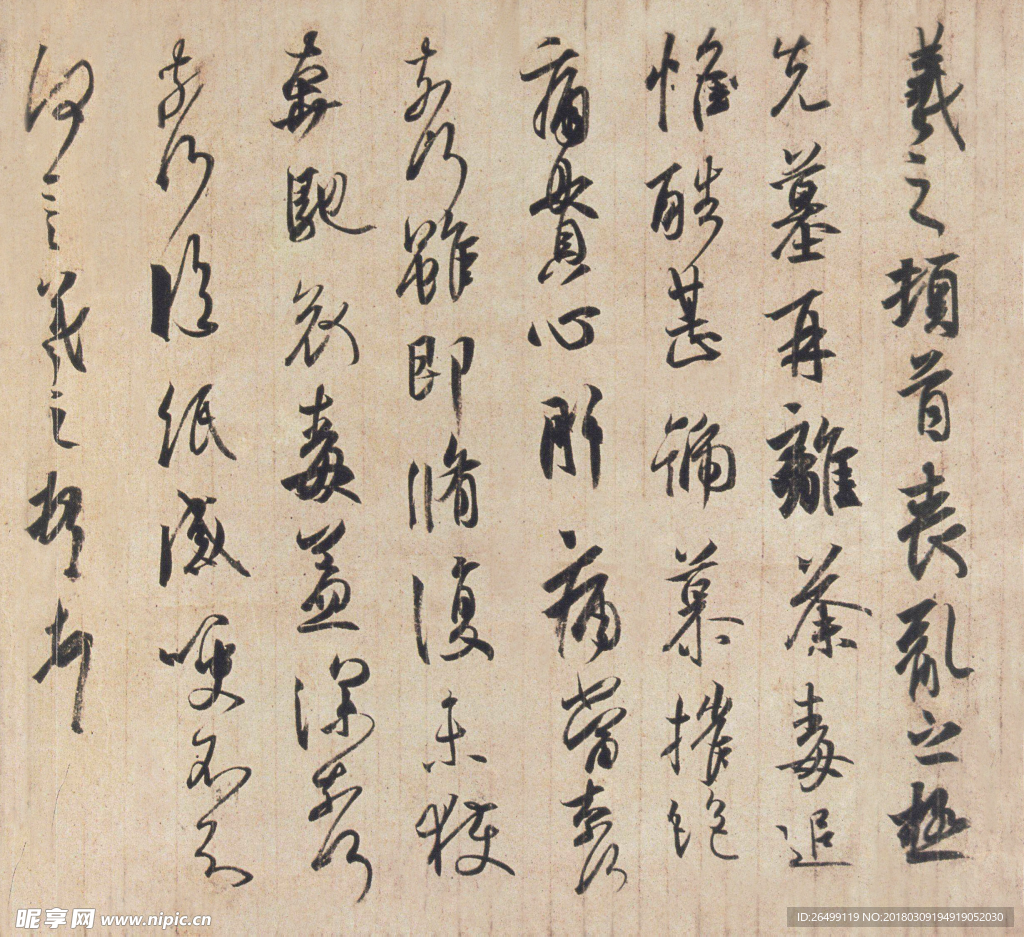 羲之頓首喪亂之極
先墓再離荼毒追
惟酷甚號慕摧絕
痛貫心肝痛當奈何
奈何雖即脩復未獲
奔馳哀毒益深奈何
奈何臨紙感哽不知
何言羲之頓首頓首
昵享网 www.nipic.cn
ID:26499119 NO:20180309194919052030